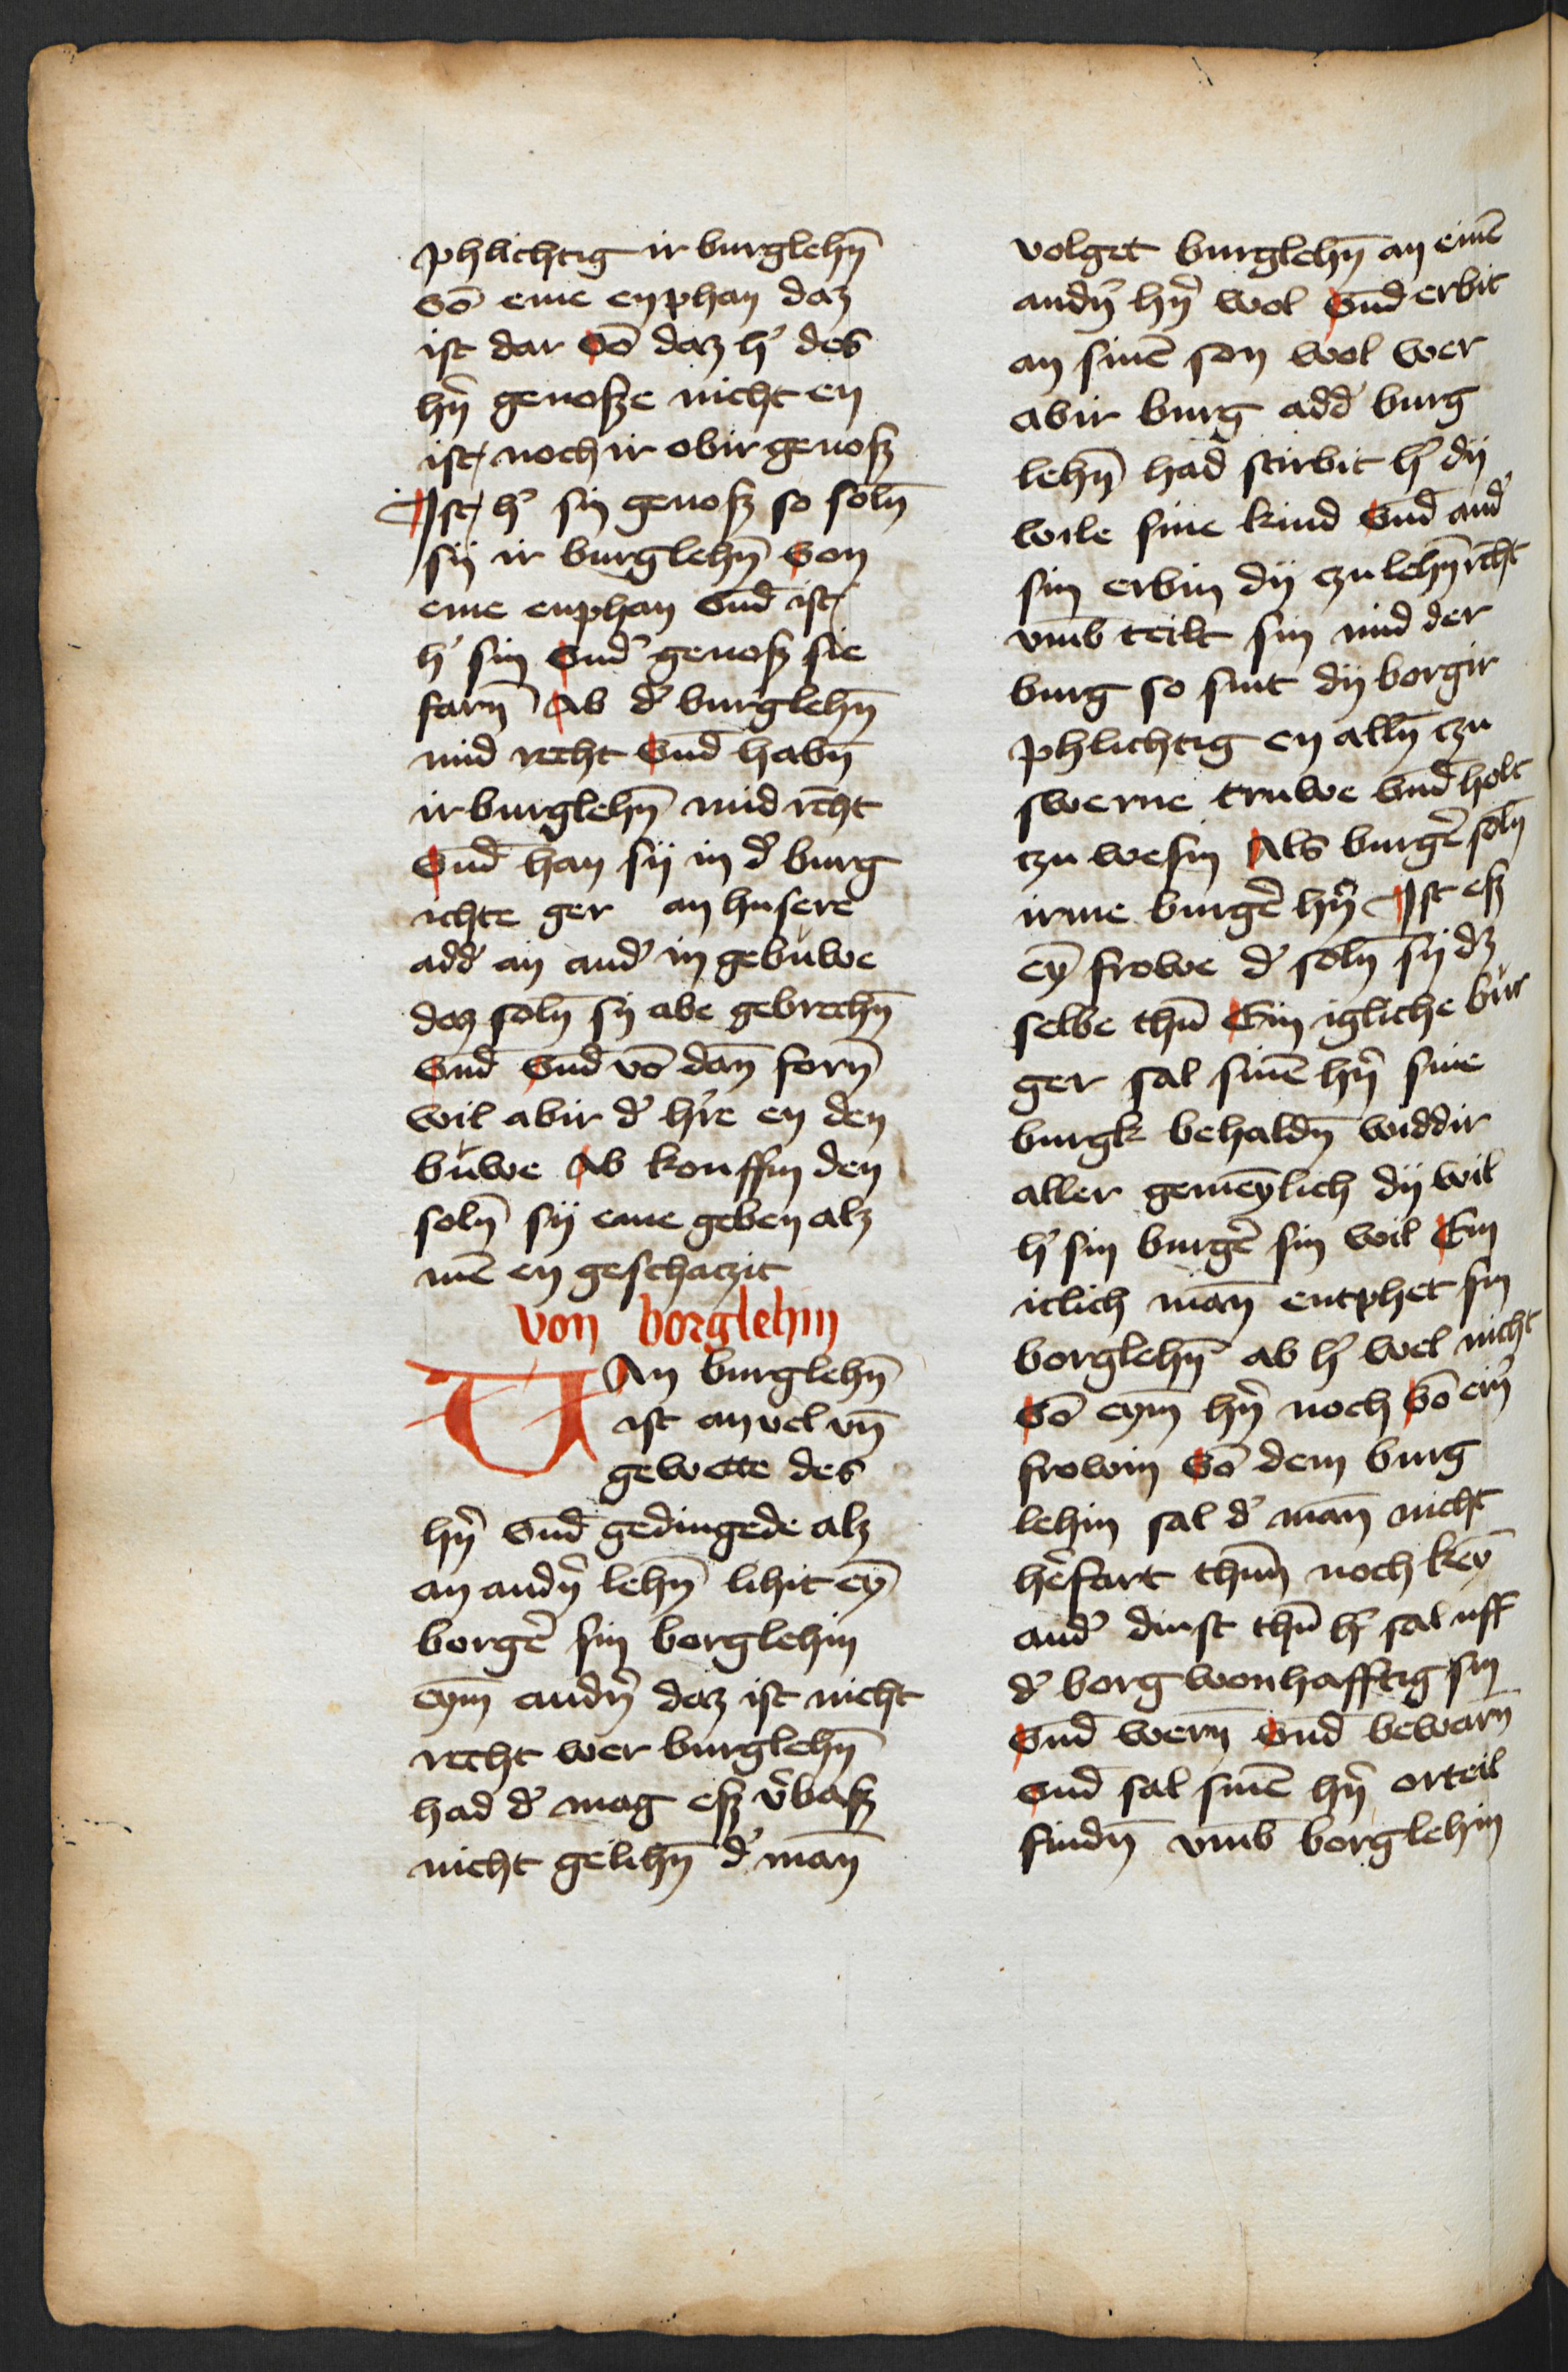 phlichtig ir burglehn̄
vō eme enphan daz
ist dar vō daz h' des
hn̄ genosze nicht en
ist noch ir obir genosz
Ist h' sin genosz so soln̄
sij ir burglehn̄ von
eme enphan vnd̄ ist
h' sin vnd' genosz sie
farn̄ Ab d' burglehn̄
mid recht vnd̄ habn̄
ir burglehn̄ mid rc̄ht
vnd̄ han sij in d' burg
ichte ger an husere
add' an and' in gebuwe
daz soln̄ sy abe gebrechn̄
vnd̄ vnd̄ vō dan̄ forn̄
wil abir d' h're en den
buwe Ab kouffin den
soln̄ sij eme geben alz
mē en geschaczit
von borglehin
An burglehn̄
ist anvel vn̄
gewette des
hn̄ vnd̄ gedingede alz
an andn̄ lehn̄ lihit eȳ
borg'e sin borglehin
eym̄ andn̄ daz ist nicht
recht wer burglehn̄
had d' mag esz v'basz
nicht gelihn̄ d' man̄
volget burglehn̄ an einē
andn̄ hn̄ wol vnd̄ erbit
an sinē son wol wer
abir burg add' burg
lehn̄ had stirbit h' dij
wile sine kind vnd̄ and'
sin erbin dij czu lehn̄ rc̄ht
vm̄b teilt sin mid der
burg so sint dij borgir
phlichtig en alln̄ czu
swerne truwe vnd̄ holt
czu wesin Als burg'e soln̄
irme burg'e hn̄ Ist esz
eȳ frowe d' soln̄ sij dz
selbe thū Ein igliche bur
ger sal sinē hn̄ sine
burgk behaldn̄ widdir
aller gemeȳlich dij wil
h' sin burg'e sin wil Ein
iclich man̄ entphet sin
borglehn̄ ab h' wel nicht
vō eym̄ hn̄ noch vō ein'
frowin vō dem burg
lehin sal d' man̄ nicht
h'efart thun̄ noch keȳ
and' dinst thū h' sal uff
d' borg wonhafftig sin
vnd̄ wern̄ vnd̄ bewarn̄
vnd̄ sal sinē hn̄ orteil
findn̄ vm̄b borglehin